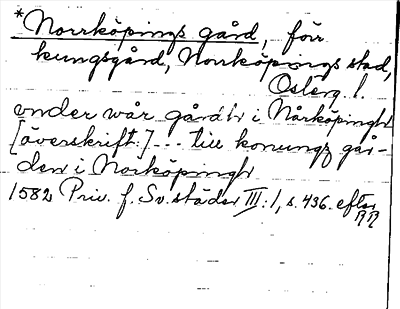 *Norrköpings gård, förr
kungsgård, Norrköpings stad,
Österg. l.
vnder wår gårdh i Nårköpingh
[överskrift:] --- till konungz går-
den i Norköpingh
1582 Priv. f. Sv. städer III:1, s. 436. efter
RR